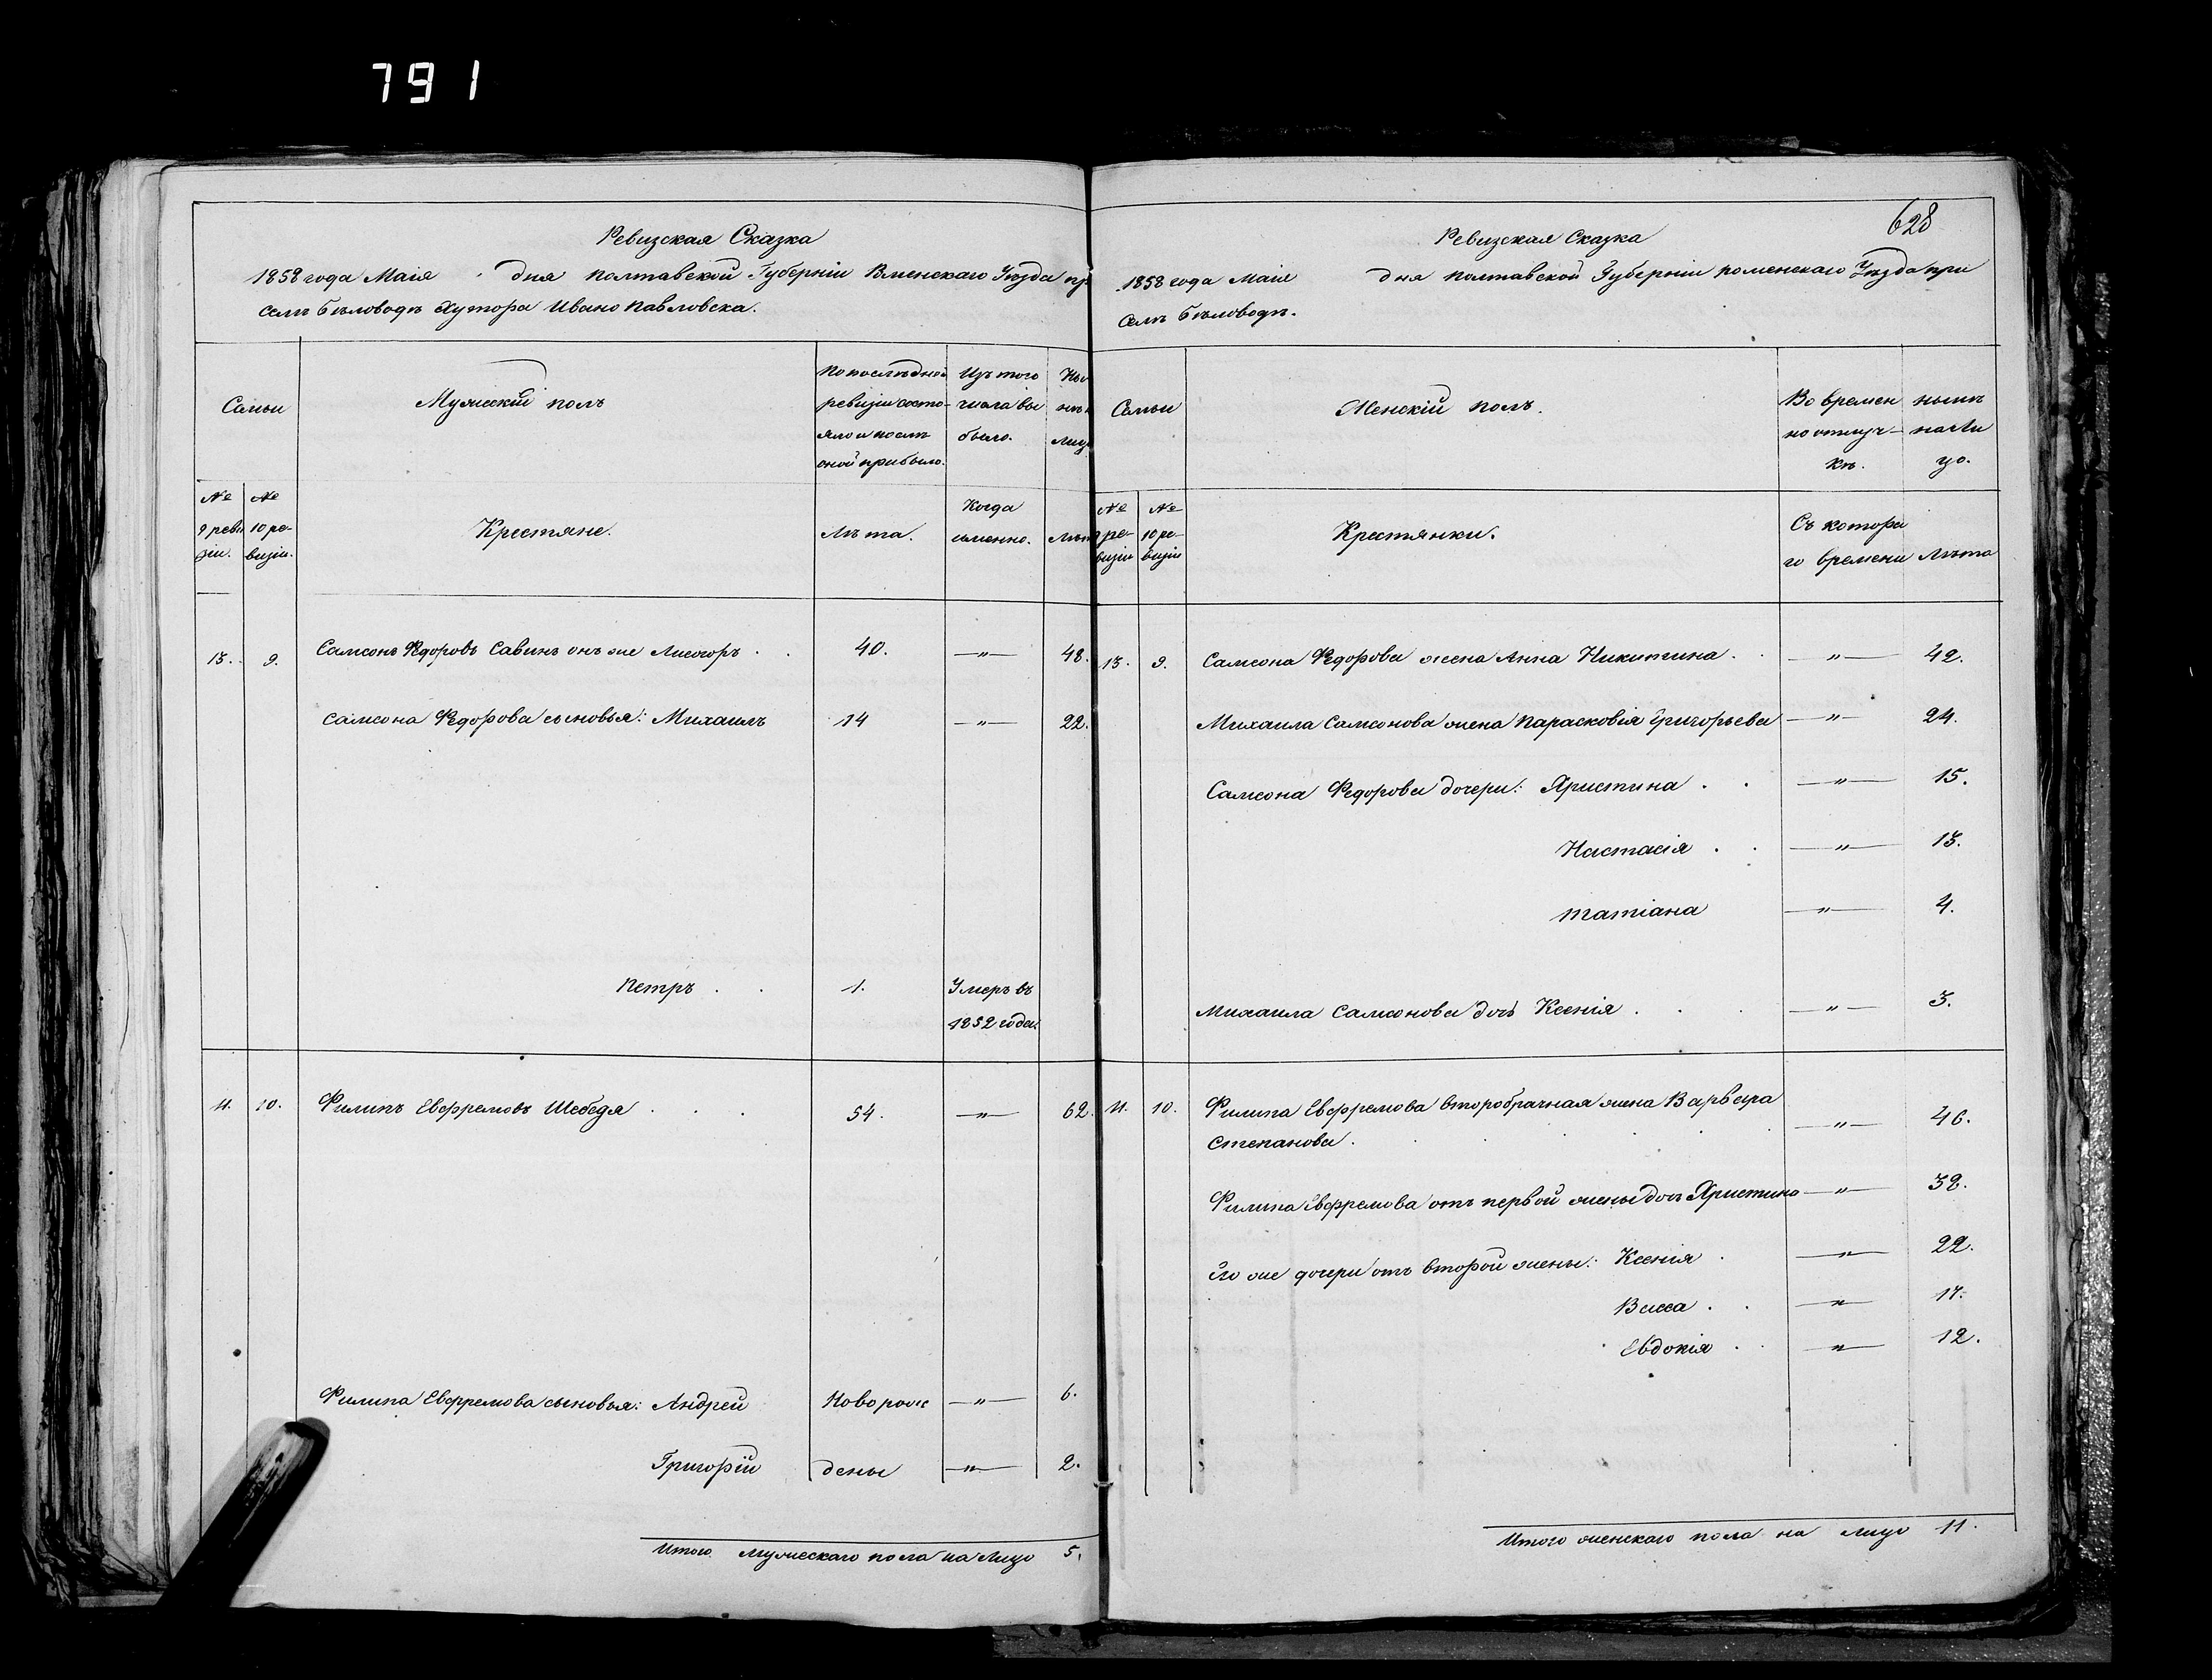 791
Ревизская Сказка
1858 года Маія дня Полтавской Губерніи Роменскаго Уѣзда пр
Селѣ Бѣловодѣ Хутора Ивано Павловска.
Семьи
Мужескій полъ
По послѣдной Изъ того Ны
ревизіи состо- числа вы
яло и послѣ было. лиц
оной прибыло.
№ №
9 реви 10 ре-
зіи. визіи.
Крестяне.
Лѣта.
Когда
именно.
Лѣт
13. 9. Самсонъ Федоровъ Савинъ онъ же Лисогоръ . . 40. —"— 48.
Самсона Федорова сыновья: Михаилъ 14 —"— 22.
Петръ . . 1. Умеръ въ
1852 года
11. 10. Филипъ Евфремовъ Шебедя . . . 54. —"— 62.
Филипа Евфремова сыновья: Андрей Новорож —"— 6.
Григорій дены —"— 2.
Итого мужескаго пола на Лицо 5.
628
Ревизская Сказка
1858 года Маія дня Полтавской Губерніи Роменскаго Уѣзда при
Селѣ Бѣловодѣ.
Семьи
Женскій полъ.
Во времен нынѣ
но отлуч- на Ли
кѣ. цо.
№ №
9 ре- 10 ре-
визіи визіи
Крестянки.
Съ котора
го времени Лѣта
13. 9. Самсона Федорова жена Анна Никитина . . —"— 42.
Михаила Самсонова жена Парасковія Григорьева —"— 24.
Самсона Федорова дочери: Христина . . —"— 15.
Настасія . . —"— 13.
Татіана —"— 4.
Михаила Самсонова дочь Ксенія . . . —"— 3.
11. 10. Филипа Евфремова второбрачная жена Варвара
Степанова . . . . . —"— 46.
Филипа Евфремова отъ первой жены дочь Христина —"— 32.
Его же дочери отъ второй жены: Ксенія . —"— 22.
Васса . . —"— 17.
Евдокія . . —"— 12.
Итого женскаго пола на лицо 11.